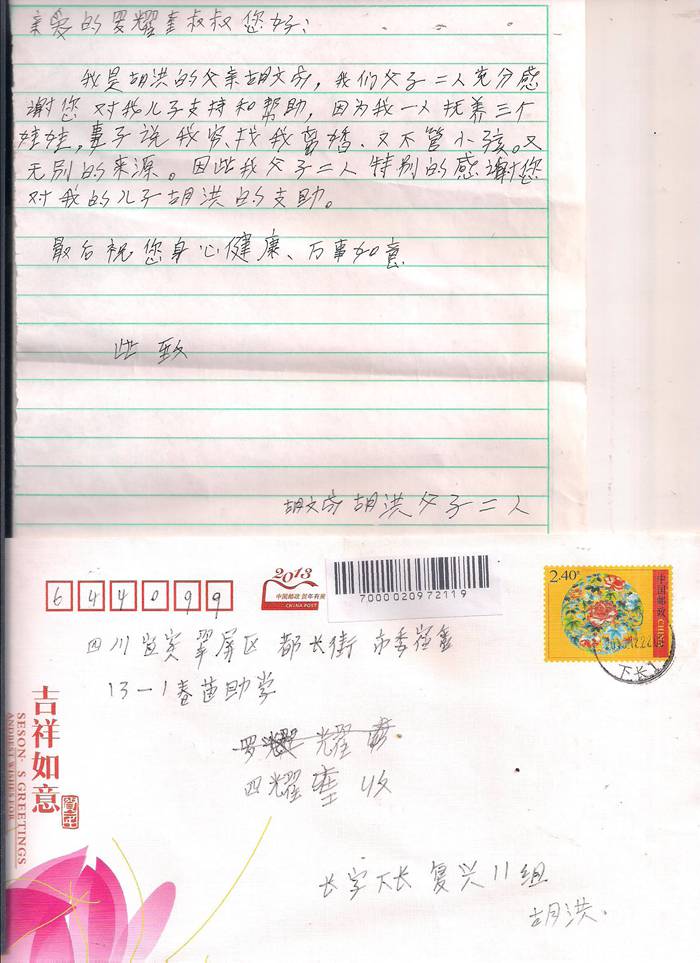 亲爱的罗耀奎叔叔您好:
我是胡洪的父亲胡文成,我们父子二人充分感
谢您对我儿子支持和帮助,因为我一人抚养三个
娃娃,妻子说我穷,找我离婚.又不管小孩。又
无别的来源。因此我父子二人特别的感谢您
对我的儿子胡洪的支助。
最后祝您身心健康、万事如意
此致
胡文成 胡洪 父子二人
644099
2013
中国邮政 贺年有奖
CHINA POST
7000020972119
2.40
中国邮政
CHINA
下长
四川宜宾翠屏区都长街市委宿舍
13-1春苗助学
耀
耀 收
吉祥如意
SESON·S GREETINGS
长宁下长复兴11组
胡洪.